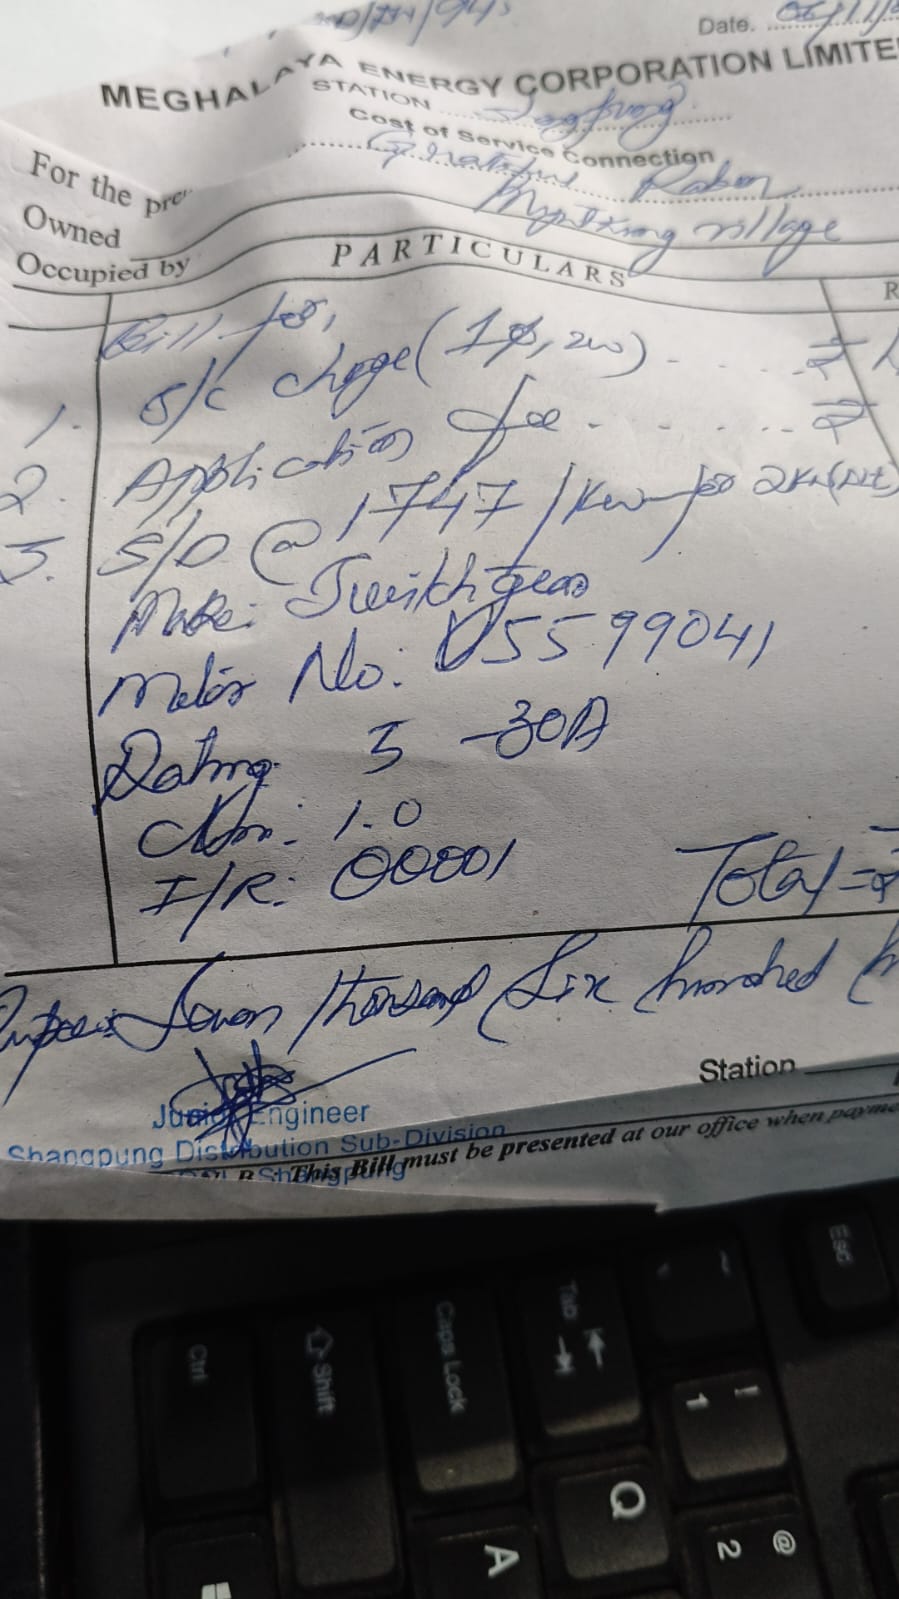 Date. 06/11/
MEGHALAYA ENERGY CORPORATION LIMITE
STATION Shangpung
Cost of Service Connection
Rabon
For the pre
village
Owned
Occupied by
PARTICULARS
R
Bill for,
1. S/C charge (1φ, 2w) - . . . . ₹
2. Application fee - . . . . ₹
3. S/D @ 1747/kw for 2kw
Make: Switchgear
Meter No: U5599041
Rating 5-30A
Class: 1.0
I/R: 00001
Total = ₹
Rupees Seven thousand Six hundred
Station
Junior Engineer
Shangpung Distribution Sub-Division
Shangpung
This Bill must be presented at our office when payme
Esc
Tab
Caps Lock
Shift
Ctrl
! 1
@ 2
Q
A